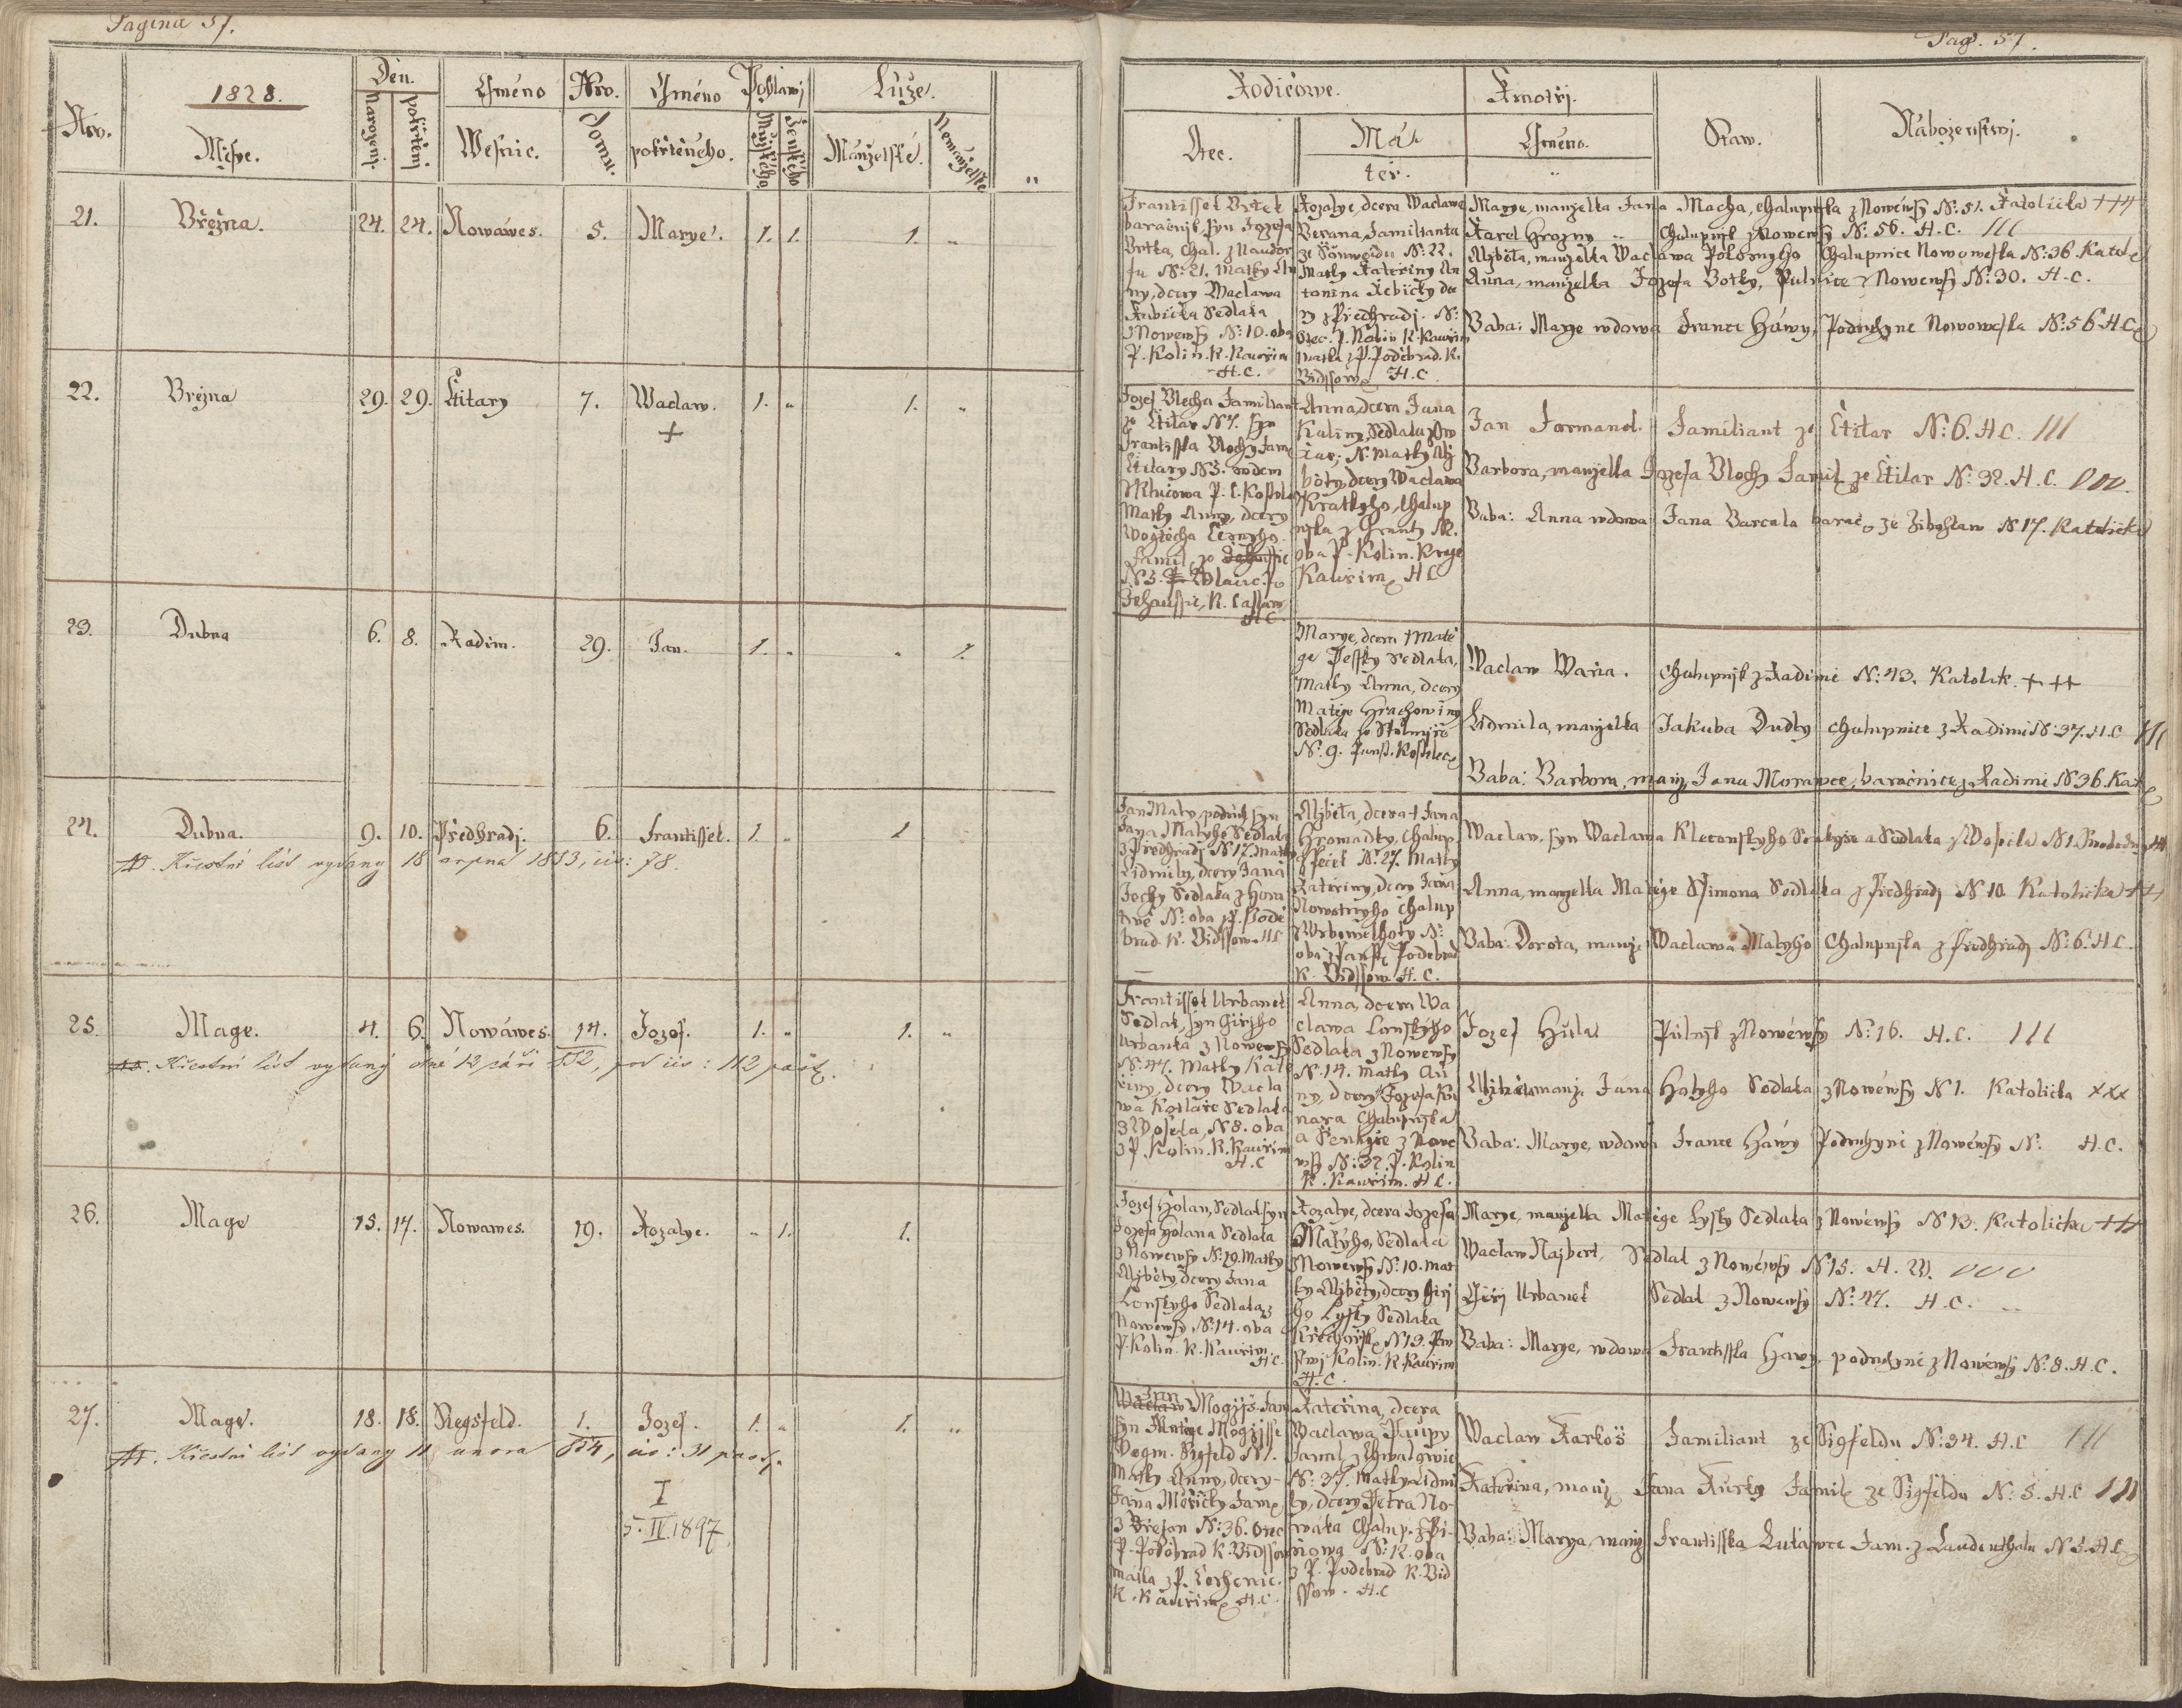 Pagina 57.
Nro.
1828.
Měsýc.
Den.
Narozenj.
pokřtěnj
Gméno
Wesnic.
Nro.
Domu.
Gméno
pokřtěného.
Pohlawj
Mužského
Ženského
Lůže.
Manželské.
Nemanželské
21. Března. 24. 24. Nowáwes. 5. Marye. 1. 1. 1. „
22. Března 29. 29. Štitary 7. Waclaw. 1. „ 1. „
+
23. Dubna 6. 8. Radim. 29. Jan. 1. „ „ 1.
24. Dubna. 9. 10. Předhradj. 6. Frantissek. 1. „ 1
Křestní list vydaný 18 srpna 1853, čís: 78.
25. Mage. 4. 6. Nowáwes. 14. Jozef. 1. „ 1. „
Křestní list vydaný dne 12 září 852, pod čís: 112
26. Mage 15. 17. Nowawes. 19. Rozalye. „ 1. 1.
27. Mage. 18. 18. Siegsfeld. 1. Jozef. 1. „ 1. „
Křestní list vydaný 11 unora 854, čís: 31
I
5. IV. 1897
Pag. 57.
Rodičowe.
Otec.
Má
ter.
Kmotřj.
Gméno.
Staw.
Náboženstwj.
Frantissek Brtek
baračnjk, syn Jozefa
Brtka, Chal. z
N: 21. Matky An
ny, dcery Waclawa
Sedlaka
z Nowewsy N: 10. oba
P. Kolín. K. Kauřim
H. C.
Rozalye, dcera Waclawa
Berana, Familianta
ze N: 22.
Matky Kateřiny An
tonina Řebičky dce
ry z Předhradj. N:
Otec. P. Kolín K. Kauřim
Matka z P. Poděbrad. K.
Bidssow. H. C.
Marye, manželka Jana Macha, chalupnjka z Nowéwsy N: 51. Katolička +++
Karel Hrozny „ Chalupnjk z Nowewsy N: 56. H. C. III
Alžběta, manželka Waclawa Chalupnice Nowoweska N: 36. Katol.
Anna, manželka Jozefa Botky, Pulnice z Nowewsy N: 30. H. C.
Baba: Marye wdowa France Háwy, Podruhyne Nowoweska N: 56 H. C.
Jozef Blecha Familiant
ze Štitar N 7. syn
Frantisska Blechy Fam.
Štitary N 3. rodem
z Klučowa P. C. Kostelec
Matky Anny, dcery
Wogtěcha Černyho
Famil. ze
N 3.
K. Časlaw
H C.
Anna, dcera Jana
Kuliny, Sedlaka
N. Matky Alž
běty, dcery Waclawa
Kratkyho, Chalup
njka z N.
oba P. Kolin. Krage
Kauřim. H C
Jan Formand. Familiant ze Štitar N: 6. H C. III
Barbora, manželka Jozefa Blochy Famil. ze Štitar N: 32. H. C.
Baba: Anna wdowa Jana Barcala barač. ze Žibohlaw N 17. Katolička
Marye, dcera † Matě
ge Pessky Sedlaka,
Matky Anna, dcery
Matěge Hrachowiny
Sedlaka ze
N. 9. Panst. Kostelec
Waclaw Waňa. Chalupnjk z Radimi N: 43. Katolik. +++
Lidmila, manželka Jakuba Dudky chalupnice z Radimi N: 37. H. C III
Baba: Barbora, manž. Jana Morawce, baračnice z Radimi N 36. Kat.
Jan Maly podruh syn
Jana Malyho Sedlaka
z Předhradj N 17. Matky
Lidmily, dcery Jana
Jochy Sedlaka z
N: oba P. Podě
brad K. Bidssow. H C
Alžběta, dcera † Jana
Hromadky, Chalup.
z Peček N: 27. Matky
Kateřiny, dcery Jana
Nowotnyho Chalup
z Wrbowelhoty N:
oba z Panst. Poděbrad
K. Bidssow. H. C.
Waclaw, syn Waclawa Kleconskyho a Sedlaka z Wosečka N 1.
Anna, manželka Matěge Ssimona Sedlaka z Předhradj N 10 Katolička ++
Baba: Dorota, manž. Waclawa Malyho Chalupnjka z Předhradj N: 6. H C.
Frantissek Urbanek
Sedlak, syn Giřjho
Urbanka z Nowewsy
N: 47. Matky Kate
řiny, dcery Wacla
wa Kotlaře Sedlaka
z Wosečka, N 8. oba
z P Kolin. K. Kauřim
H. C
Anna, dcera Wa
clawa Lonskyho
Sedlaka z Nowewsy
N: 14. Matky An
ny, dcery Jozefa
Chalupnjka
a Šenkýře z Nowe
wsy N: 32. P. Kolin
K. Kauřim. H C.
Jozef Hůla Pulnjk z Nowéwsy N: 16. H. C. III
Alžběta manž. Jana Holyho Sedlaka z Nowéwsy N 1. Katolička xxx
Baba: Marye, wdowa France Háwy Podruhyni z Nowéwsy N: H. C.
Jozef Holan, Sedlak syn
Jozefa Holana Sedlaka
z Nowewsy N: 19. Matky
Alžběty, dcery Jana
Lonskyho Sedlaka z
Nowewsy N: 14. oba
P. Kolin. K. Kauřim.
H C.
Rozalye, dcera Jozefa
Malyho, Sedlaka
z Nowewsy N: 10. Mat
ky Alžběty, dcery Giřj
ho Lysky Sedlaka
N 19. Pan
stwj Kolin. K Kauřim
H. C.
Marye, manželka Matěge Lysky Sedlaka z Nowéwsy N 13. Katolička +++
Waclaw Najbert, Sedlak z Nowéwsy N 15. H. W.
Giřj Urbanek Sedlak z Nowewsy N: 47. H. C.
Baba: Marye, wdowa Frantisska Hawy, podruhyni z Nowéwsy N: 8. H. C.
Jan
Waclaw Mogžjš Fam
syn Matěge Mogžjsse
N 1.
Matky Anny, dcery
Jana Měřičky Fam.
z Břežan N: 36. Otec
P. Poděbrad K. Bidssow
Matka z P. Cerhenic.
K. Kauřim. H. C.
Kateřina, dcera
Waclawa Paupy
Famil. z Chwalowic
N: 37. Matky Lidmi
ly, dcery Petra No-
waka Chalup. z Pi-
nowa N: K. oba
z P. Poděbrad K. Bid
ssow. H. C
Waclaw Karboš Familiant ze Sigfeldu N: 34. H. C III
Kateřina, manž. Jana Kurky Famil. ze Sigfeldu N: 5. H. C III
Baba: Marya, manž. Frantisska Lutawce Fam. z Laudenthalu N 3. H C